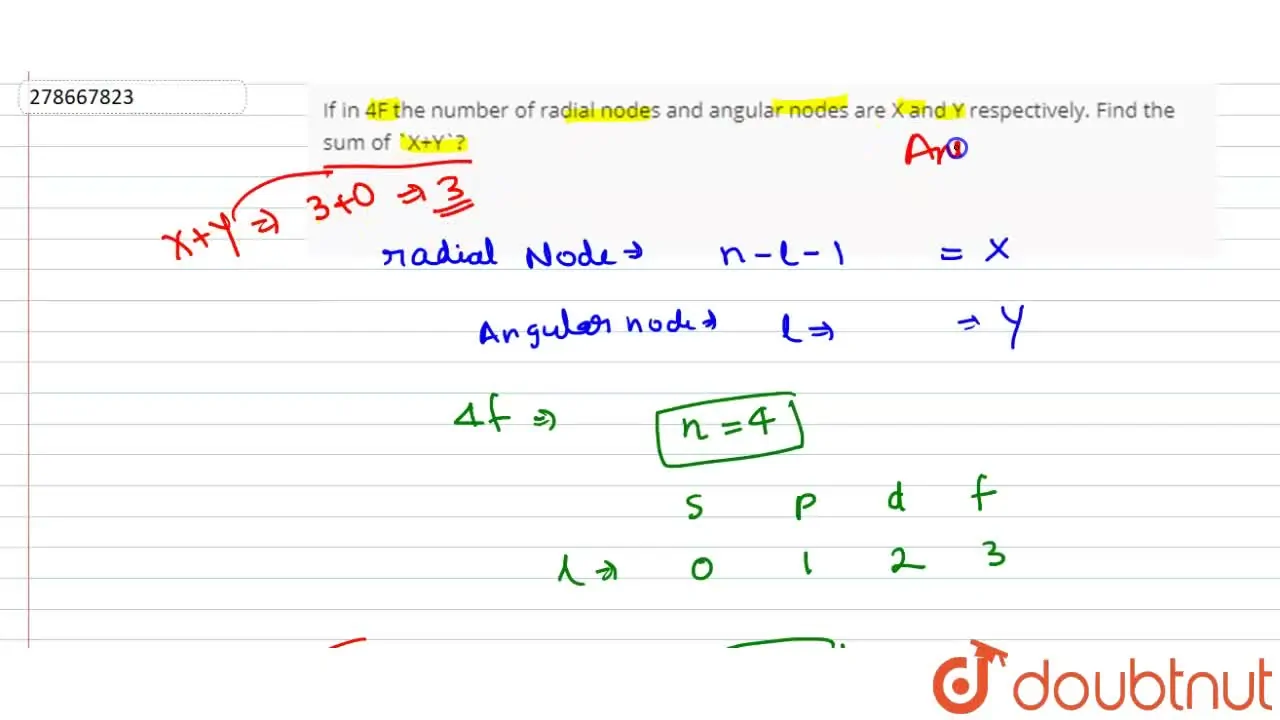 278667823
If in 4F the number of radial nodes and angular nodes are X and Y respectively. Find the
sum of `X+Y`?
An
X+Y ⇒ 3+0 ⇒ 3
radial Node ⇒ n-l-1 = X
Angular node ⇒ l ⇒ ⇒ Y
4f ⇒ n=4
s p d f
l ⇒ 0 1 2 3
doubtnut